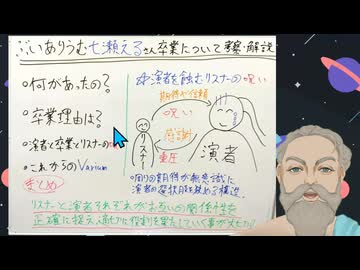 ぶいありうむ七瀬えるさん卒業について考察・解説
・何があったの?
・卒業理由は?
・演者と卒業とリスナーの
・これからのVarium
まとめ
演者を蝕むリスナーの呪い
期待や信頼
呪い
感謝
重圧
リスナー
演者
・周りの期待が無意識に
リスナーと演者それぞれがお互いの関係性を
正確に捉え適切に役割を果たしていく事が大切!!